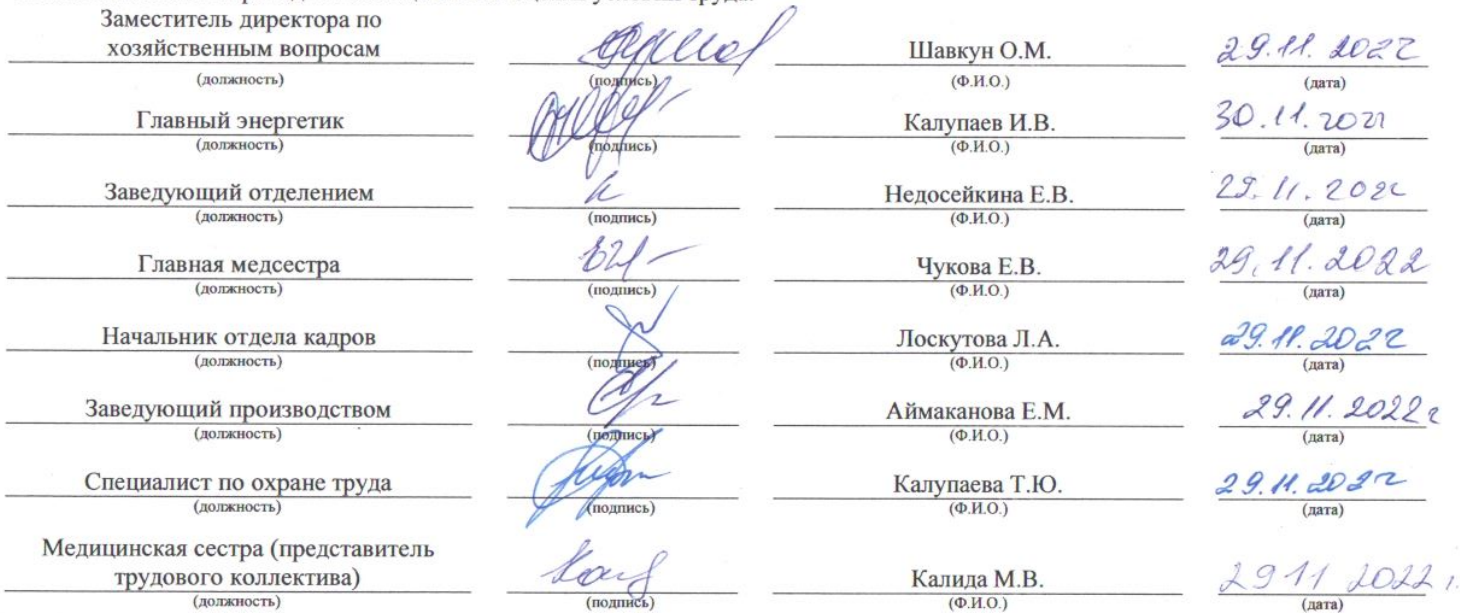 Заместитель директора по
хозяйственным вопросам Шавкун О.М. 29.11.2022
(должность) (подпись) (Ф.И.О.) (дата)
Главный энергетик Калупаев И.В. 30.11.
(должность) (подпись) (Ф.И.О.) (дата)
Заведующий отделением Недосейкина Е.В. 29.11.2022
(должность) (подпись) (Ф.И.О.) (дата)
Главная медсестра Чукова Е.В. 29.11.2022
(должность) (подпись) (Ф.И.О.) (дата)
Начальник отдела кадров Лоскутова Л.А. 29.11.2022
(должность) (подпись) (Ф.И.О.) (дата)
Заведующий производством Аймаканова Е.М. 29.11.2022 г
(должность) (подпись) (Ф.И.О.) (дата)
Специалист по охране труда Калупаева Т.Ю. 29.11.2022
(должность) (подпись) (Ф.И.О.) (дата)
Медицинская сестра (представитель
трудового коллектива) Калида М.В. 29 11 2022 г.
(должность) (подпись) (Ф.И.О.) (дата)